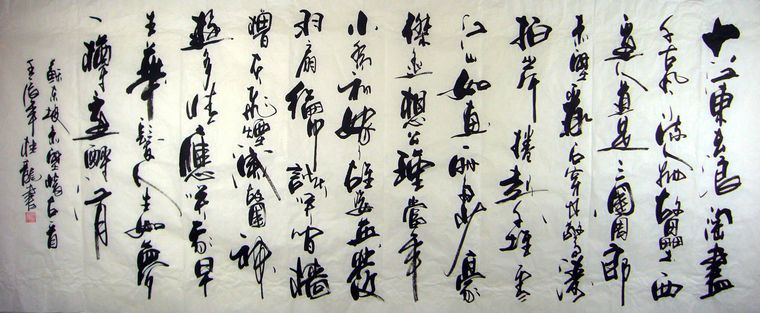 大江東去浪淘盡
千古風流人物故壘西
邊人道是三國周郎
赤壁亂石穿空驚濤
拍岸捲起千堆雪
江山如畫一時多少豪
傑遙想公瑾當年
小喬初嫁雄姿英發
羽扇綸巾談笑間檣
櫓灰飛煙滅故國神
遊多情應笑我早
生華髮人生如夢
一樽還酹江月
蘇東坡赤壁懷古一首